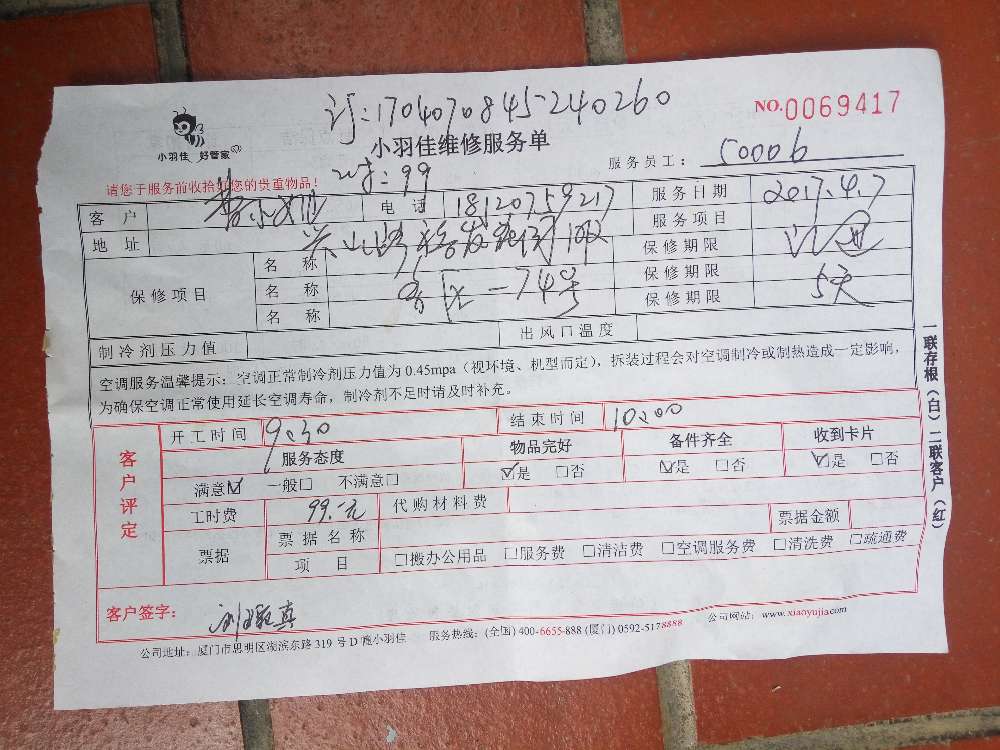 订:1704070845-240260
NO.0069417
小羽佳 好管家
小羽佳维修服务单
服务员工: 50006
请您于服务前收拾好您的贵重物品!
:99
客户 电话 18120759217 服务日期 2017.4.7
地址 服务项目
保修项目 名称 保修期限
名称 一74号 保修期限
名称 保修期限 5天
制冷剂压力值 出风口温度
空调服务温馨提示:空调正常制冷剂压力值为0.45mpa(视环境、机型而定),拆装过程会对空调制冷或制热造成一定影响,
为确保空调正常使用延长空调寿命,制冷剂不足时请及时补充。
客户评定
开工时间 9:30 结束时间 10:00
服务态度 物品完好 备件齐全 收到卡片
满意☑ 一般□ 不满意□ ☑是 □否 ☑是 □否 ☑是 □否
工时费 99.-元 代购材料费
票据 票据名称 票据金额
项目 □搬办公用品 □服务费 □清洁费 □空调服务费 □清洗费 □疏通费
客户签字:
公司地址:厦门市思明区湖滨东路319号D幢小羽佳 服务热线:(全国)400-6655-888 (厦门)0592-5178888 公司网站:www.xiaoyujia.com
一联存根(白)二联客户(红)